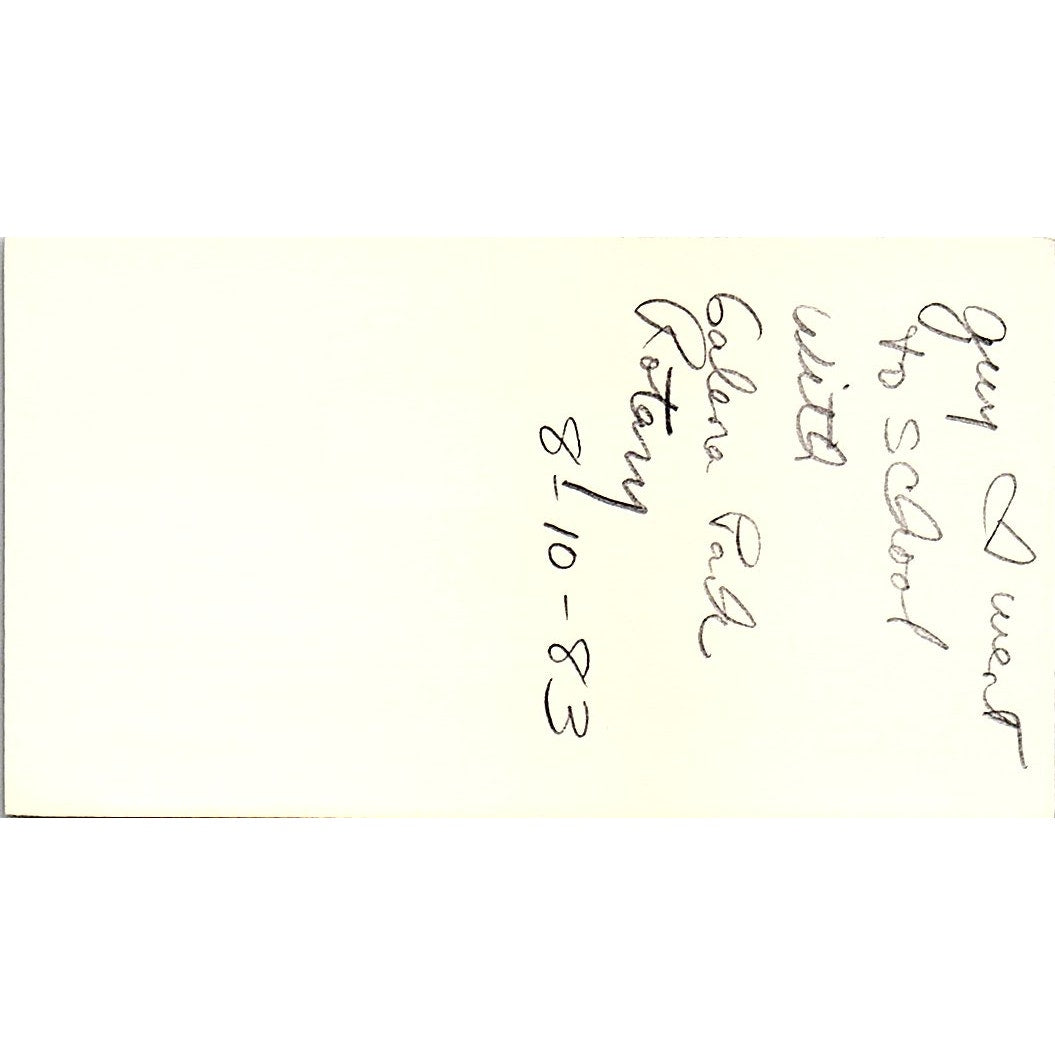 guy I went
to school
with
Galena Park
Rotary
8-10-83